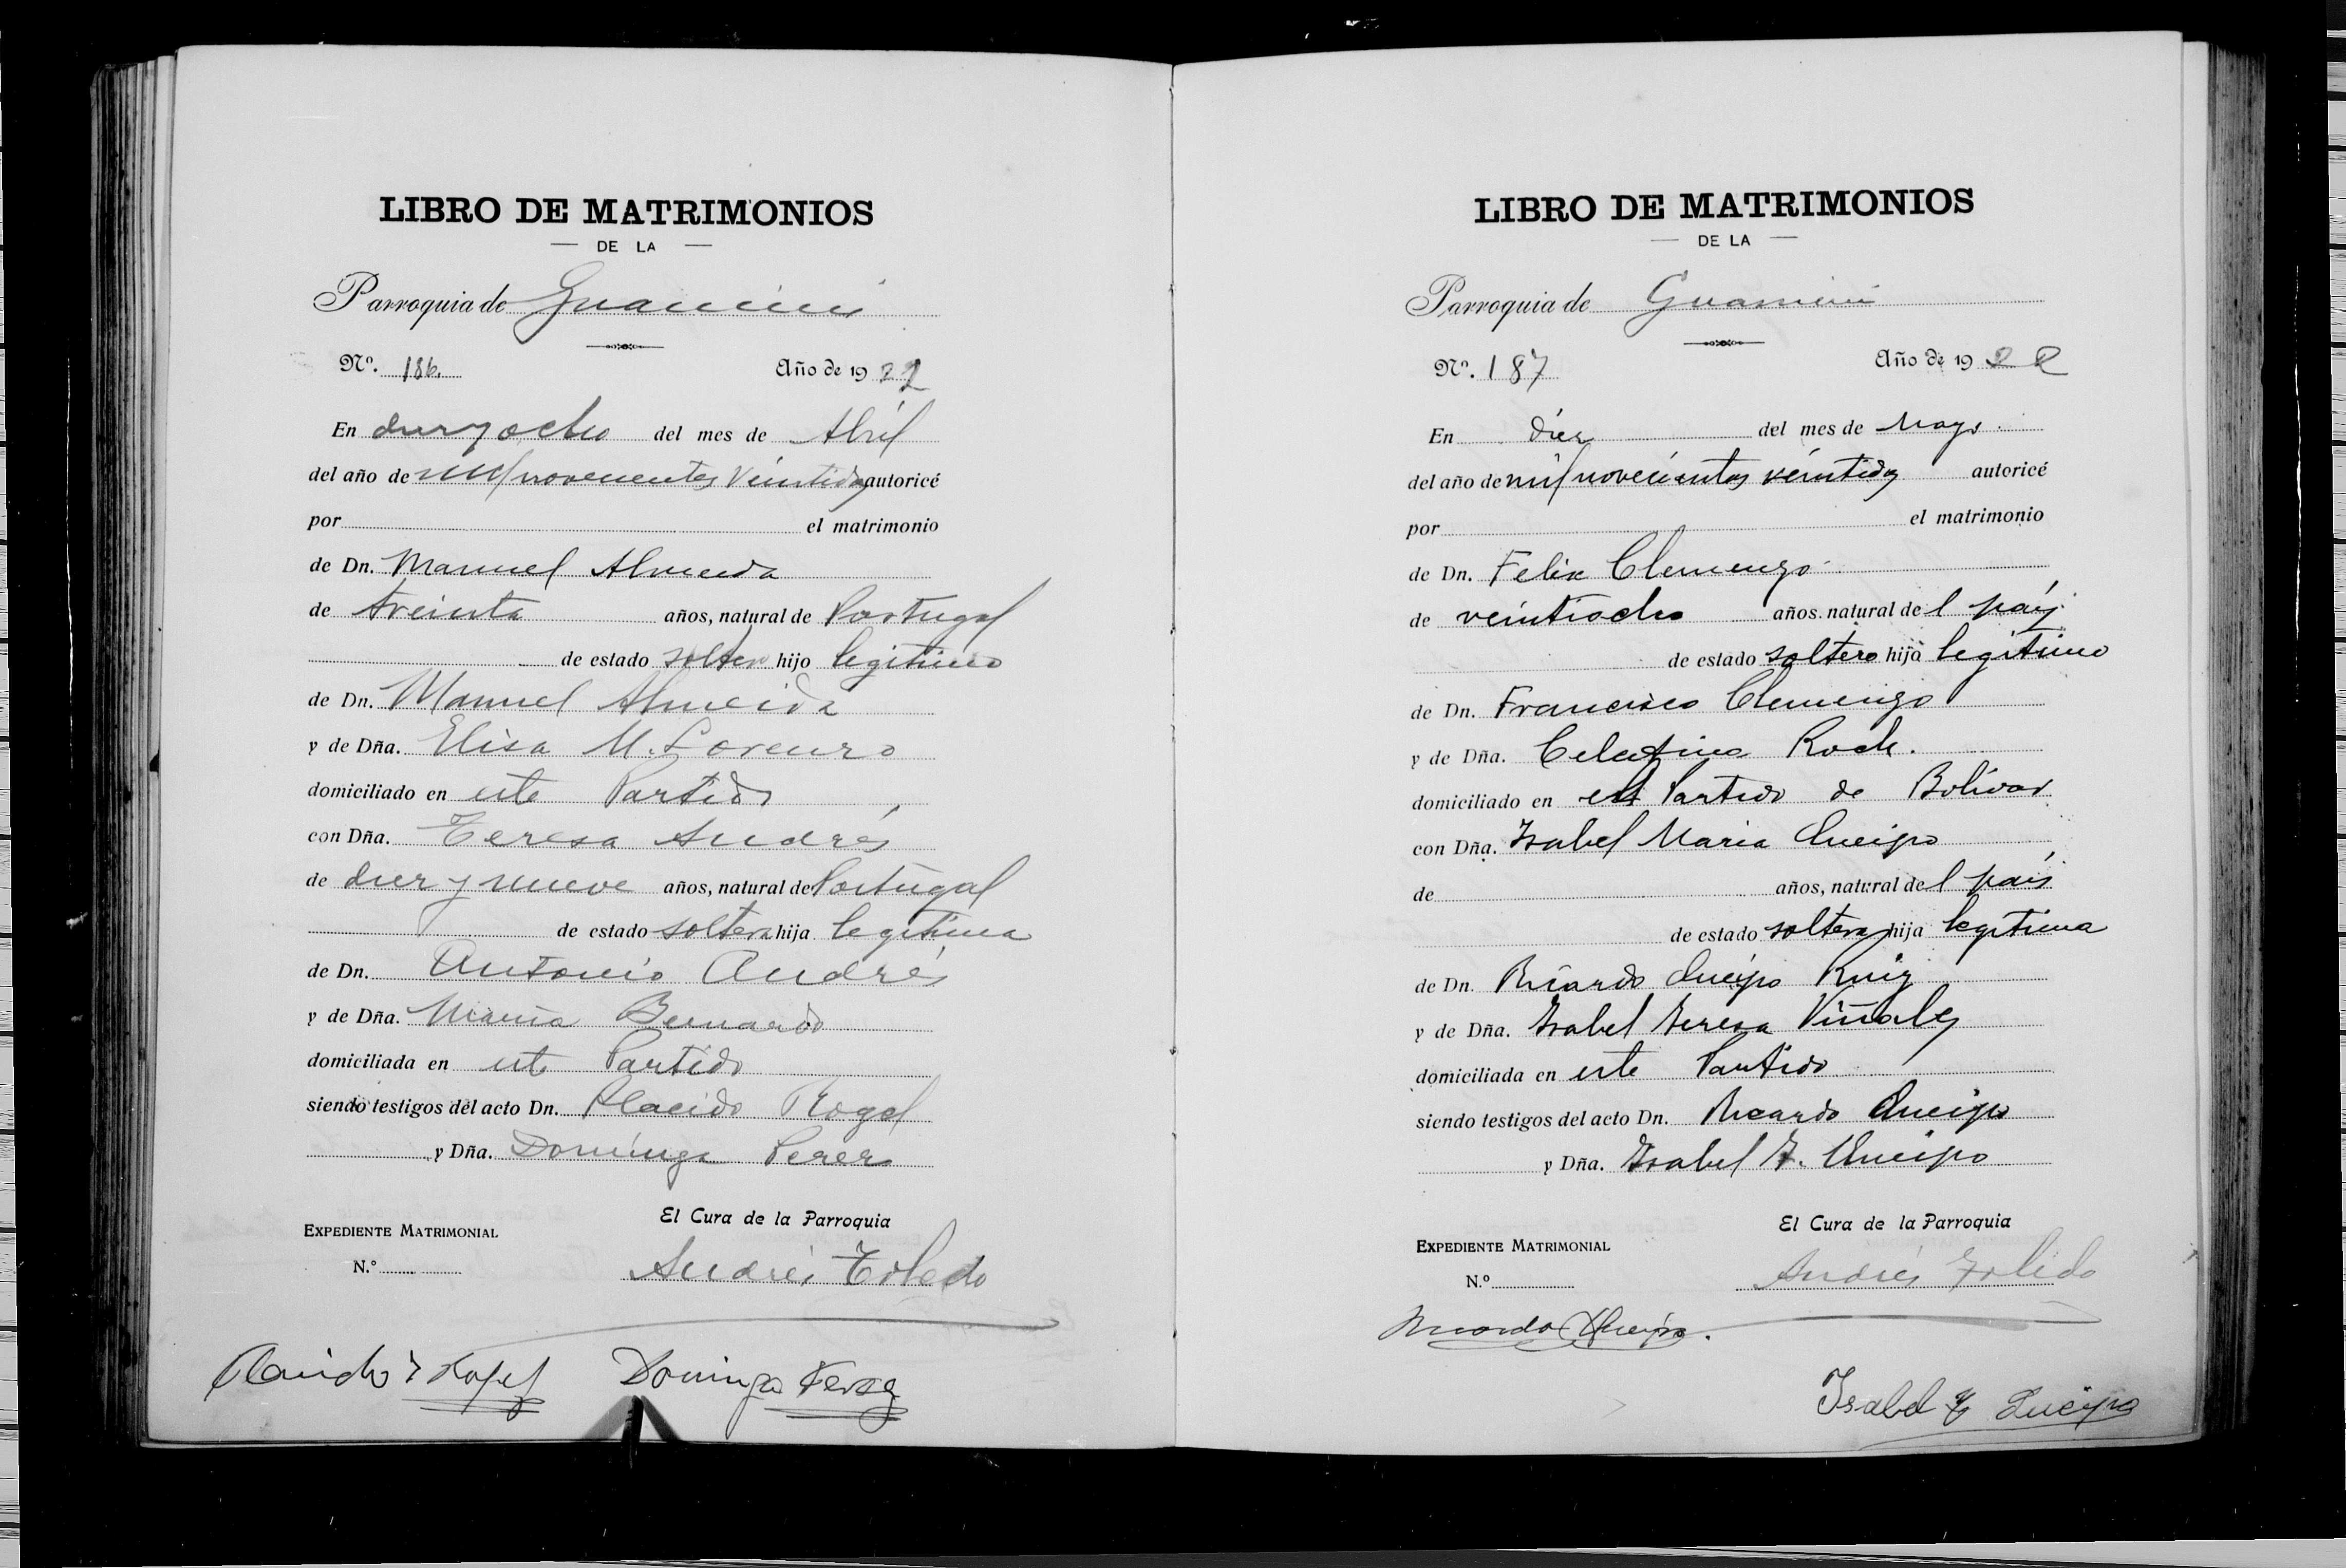 LIBRO DE MATRIMONIOS
— DE LA —
Parroquia de Guamini
Nº. 186. Año de 1922
En diez y ocho del mes de Abril
del año de mil novecientos veintidos autoricé
por el matrimonio
de Dn. Manuel Almeida
de treinta años, natural de Portugal
de estado soltero hijo legitimo
de Dn. Manuel Almeida
y de Dña. Elisa M. Lorenzo
domiciliado en este Partido
con Dña. Teresa Andrés
de diez y nueve años, natural de Portugal
de estado soltera hija legitima
de Dn. Antonio Andrés
y de Dña. Maria Bernardo
domiciliada en este Partido
siendo testigos del acto Dn. Placido Rogel
y Dña. Dominga Perez
El Cura de la Parroquia
EXPEDIENTE MATRIMONIAL
N.º
Andrés Toledo
Placido Rogel Dominga Perez
LIBRO DE MATRIMONIOS
— DE LA —
Parroquia de Guamini
Nº. 187 Año de 1922
En diez del mes de Mayo.
del año de mil novecientos veintidos autoricé
por el matrimonio
de Dn. Felix Clemenzo
de veintiocho años. natural del país
de estado soltero hijo legitimo
de Dn. Francisco Clemenzo
y de Dña. Celestina Roch.
domiciliado en el Partido de Bolívar
con Dña. Isabel Maria Queipo
de años, natural del país
de estado soltera hija legitima
de Dn. Ricardo Queipo Ruiz
y de Dña. Isabel Teresa Viñales
domiciliada en este Partido
siendo testigos del acto Dn. Ricardo Queipo
y Dña. Isabel T. Queipo
El Cura de la Parroquia
EXPEDIENTE MATRIMONIAL
N.º
Andrés Toledo
Ricardo Queipo.
Isabel Queipo